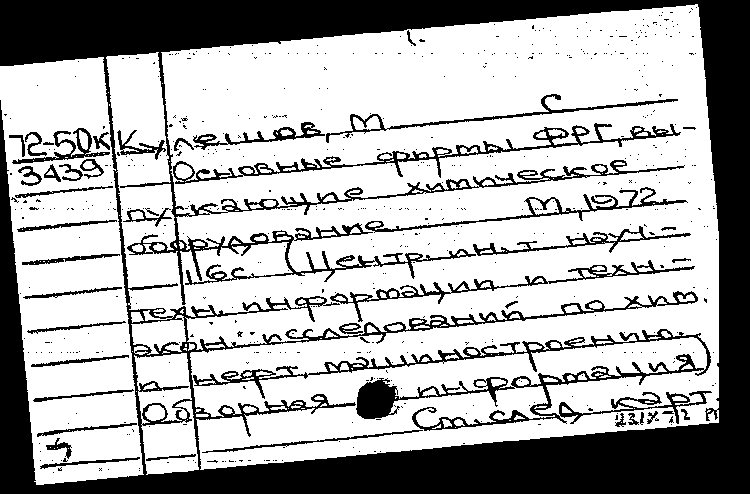 С
72-50к Кулешов, М
3439 Основные фирмы ФРГ, вы-
пускающие химическое
оборудование. М., 1972.
116с. (Центр. ин. т науч.-
техн. информации и техн.-
экон. исследований по хим.
и нефт. машиностроению.
Обзорная информация)
См. след. карт.